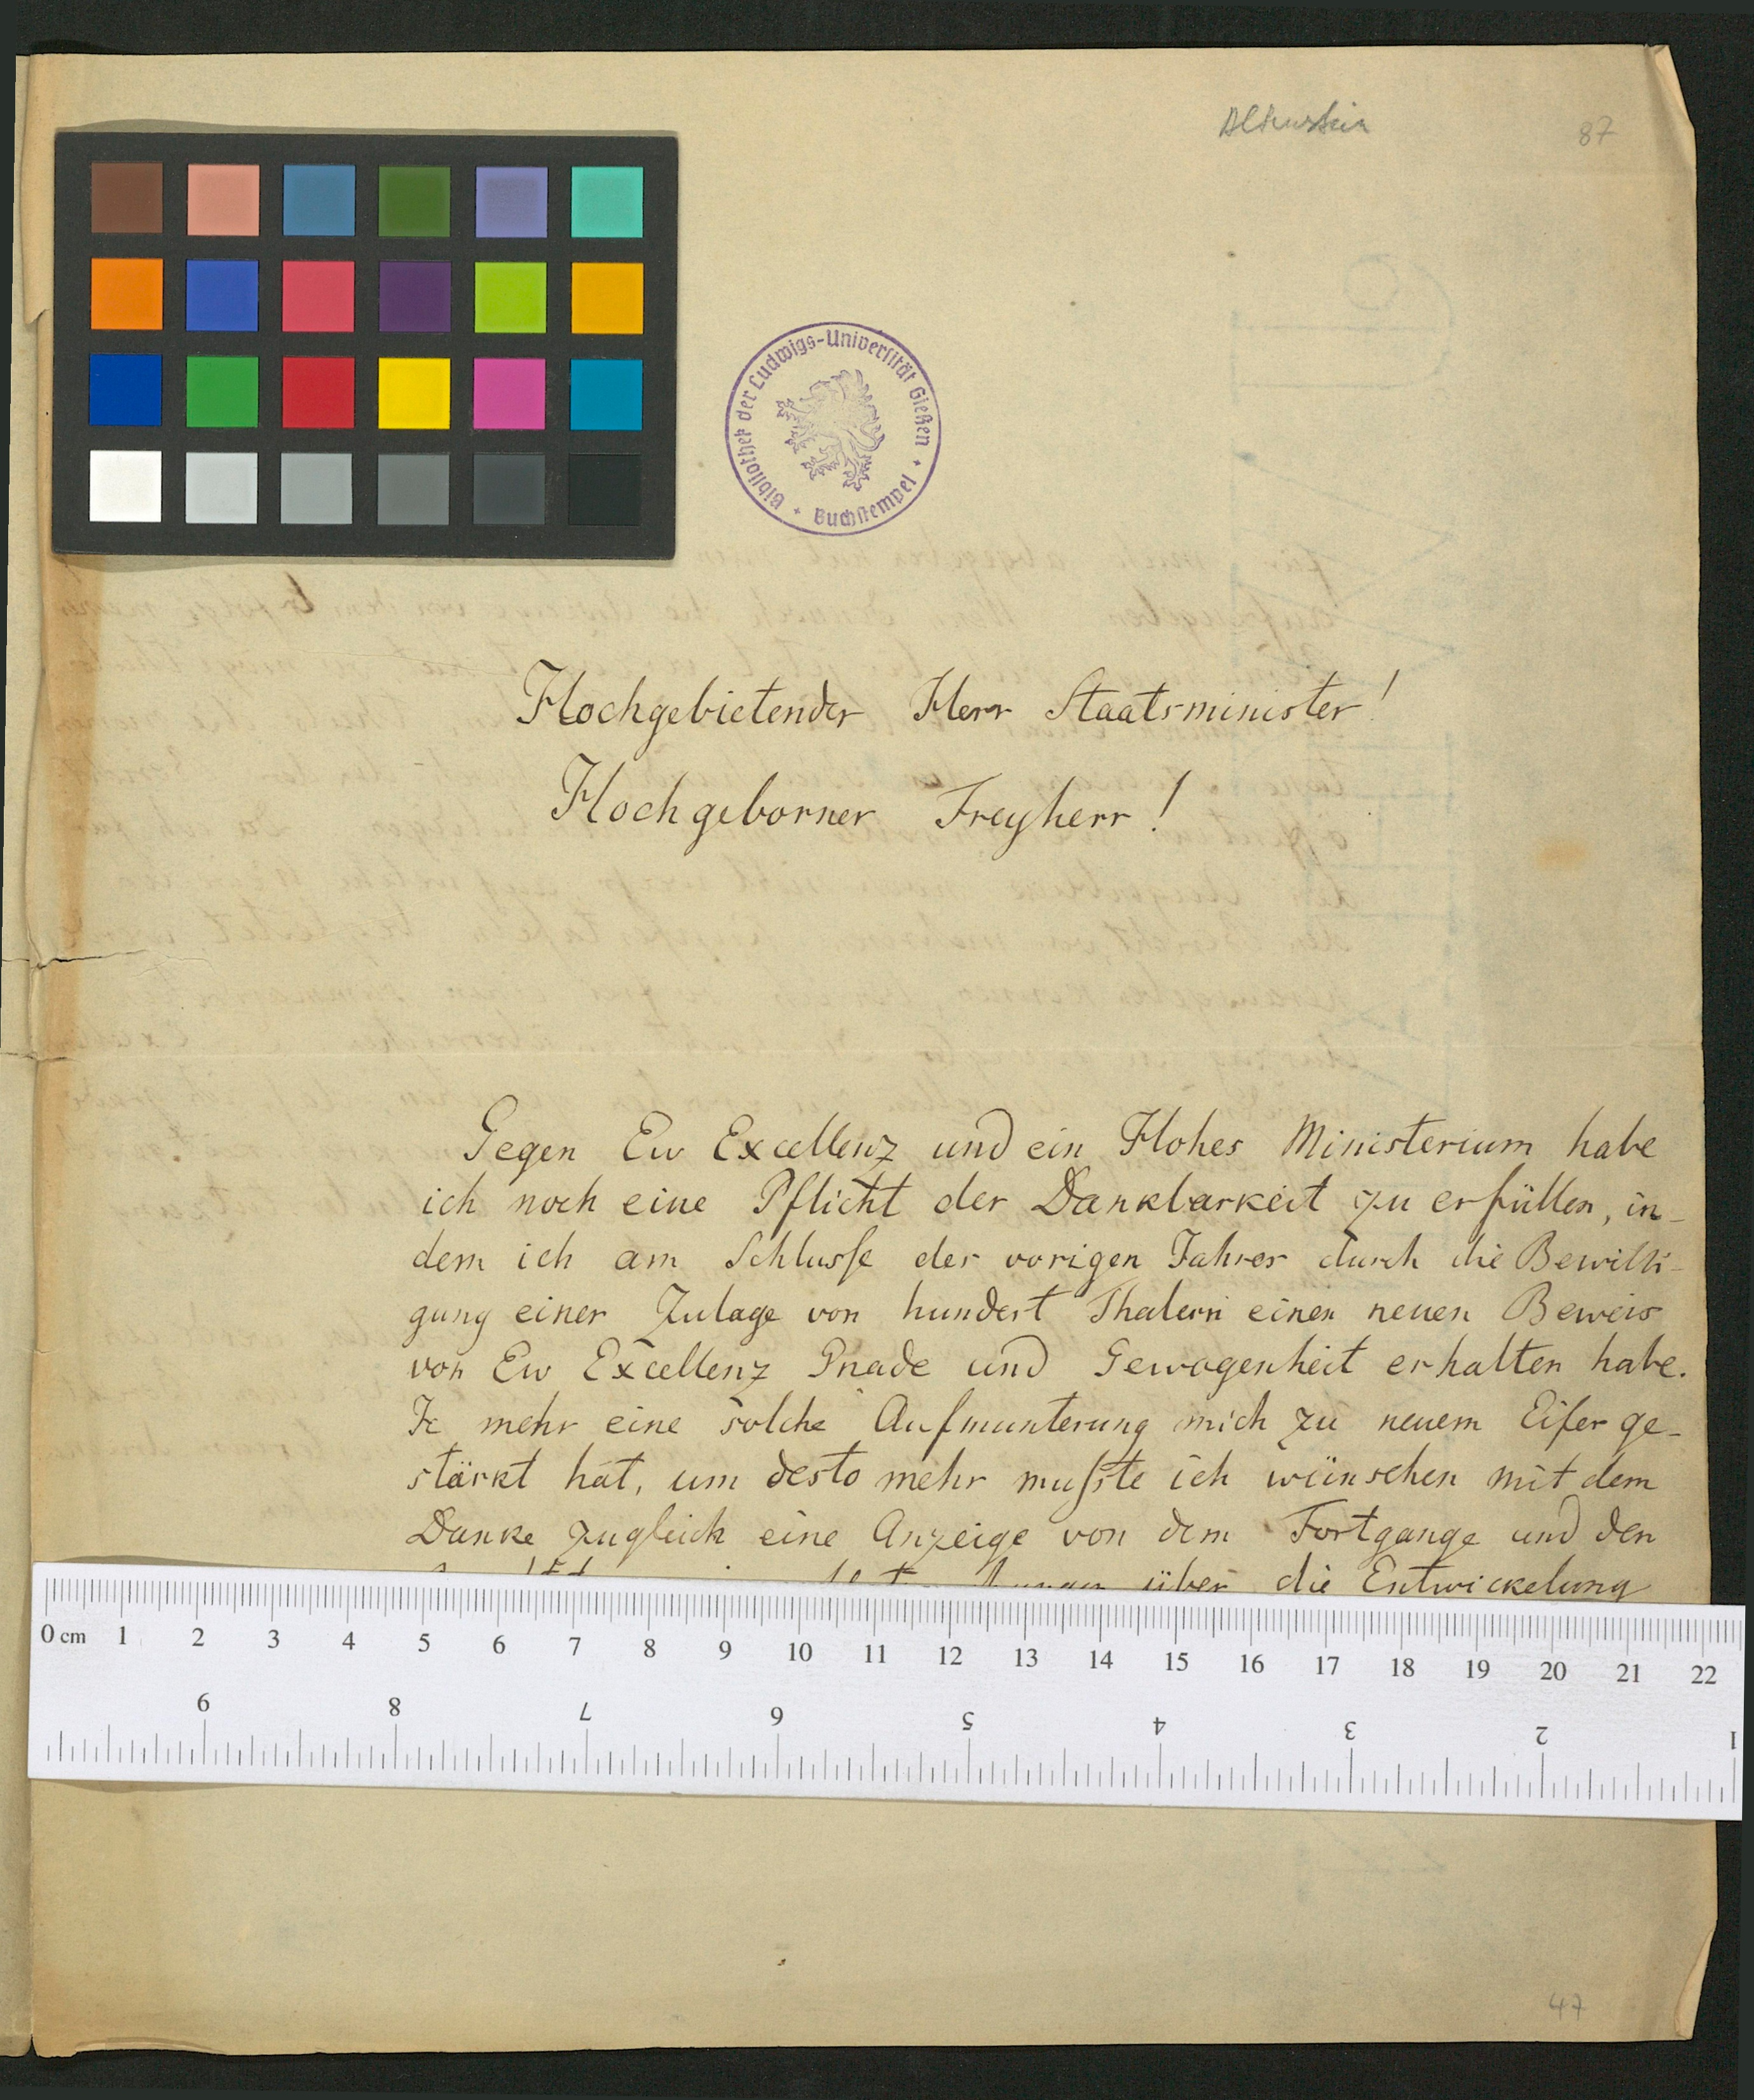 Altenstein
87
Bibliothek der Ludwigs-Universität Gießen + Buchstempel +
Hochgebietender Herr Staatsminister!
Hochgeborner Freyherr!
Gegen Ew Excellenz und ein Hohes Ministerium habe
ich noch eine Pflicht der Dankbarkeit zu erfüllen, in-
dem ich am Schlusse des vorigen Jahres durch die Bewilli-
gung einer Zulage von hundert Thalern einen neuen Beweis
von Ew Excellenz Gnade und Gewogenheit erhalten habe.
Je mehr eine solche Aufmunterung mich zu neuem Eifer ge-
stärkt hat, um desto mehr mußte ich wünschen mit dem
Danke zugleich eine Anzeige von dem Fortgange und den
über die Entwickelung
0 cm 1 2 3 4 5 6 7 8 9 10 11 12 13 14 15 16 17 18 19 20 21 22
9 8 7 6 5 4 3 2 1
47